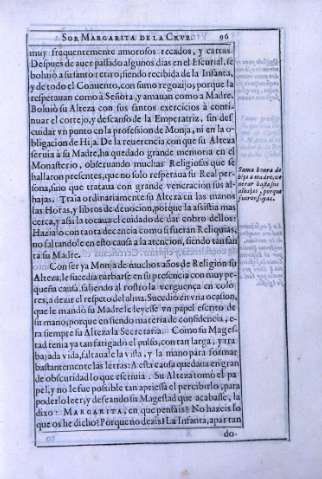 SOR MARGARITA DE LA CRVZ. 96
muy frequentemente amorosos recados, y cartas.
Despues de auer passado algunos dias en el Escurial, se
boluiò a su santo retiro, siendo recibida de la Infanta,
y de todo el Conuento, con sumo regozijo, porque la
respetauan como à Señora, y amauan como a Madre.
Boluiò su Alteza con sus santos exercicios à conti-
nuar el cortejo, y descanso de la Emperatriz, sin des
cuidar vn punto en la profession de Monja, ni en la o-
bligacion de Hija. De la reuerencia con que su Alteza
seruia à su Madre, ha quedado grande memoria en el
Monasterio, obseruando muchas Religiosas que se
hallaron presentes, que no solo respetaua su Real per-
sona, sino que trataua con grande veneracion sus al-
hajas. Traia ordinariamente su Alteza en las manos
las Horas, y libros de deuocion, porque la assistia mas
cerca, y assi la tocaua el cuidado de dar cobro dellos:
Hazialo con tanta decencia como si fueran Reliquias,
no faltandole en esta causa à la atencion, siendo tan san
ta su Madre.
Con ser ya Monja de muchos años de Religion su
Alteza, le sucedia turbarse en su presencia con muy pe-
queña causa, saliendo al rostro la verguença en colo-
res, a dezir el respeto del alma. Sucediò en vna ocasion,
que le mandò su Madre le leyesse vn papel escrito de
su mano, porque en siendo materia de confidencia, e-
ra siempre su Alteza la Secretaria. Como su Mages-
tad tenia ya tan fatigado el pulso, con tan larga, y tra-
bajada vida, faltaua le la vista, y la mano para formar
bastantemente las letras: A esta causa quedaua en gran
de obscuridad lo que escriuia. Su Alteza tomò el pa
pel, y no le fue possible tan apriessa el percebirlo, para
poderlo leer, y deseando su Magestad que acabasse, la
dixo: MARGARITA, en que pensais? No hazeis lo
que os he dicho? Porque no dezis? La Infanta, apartan
do-